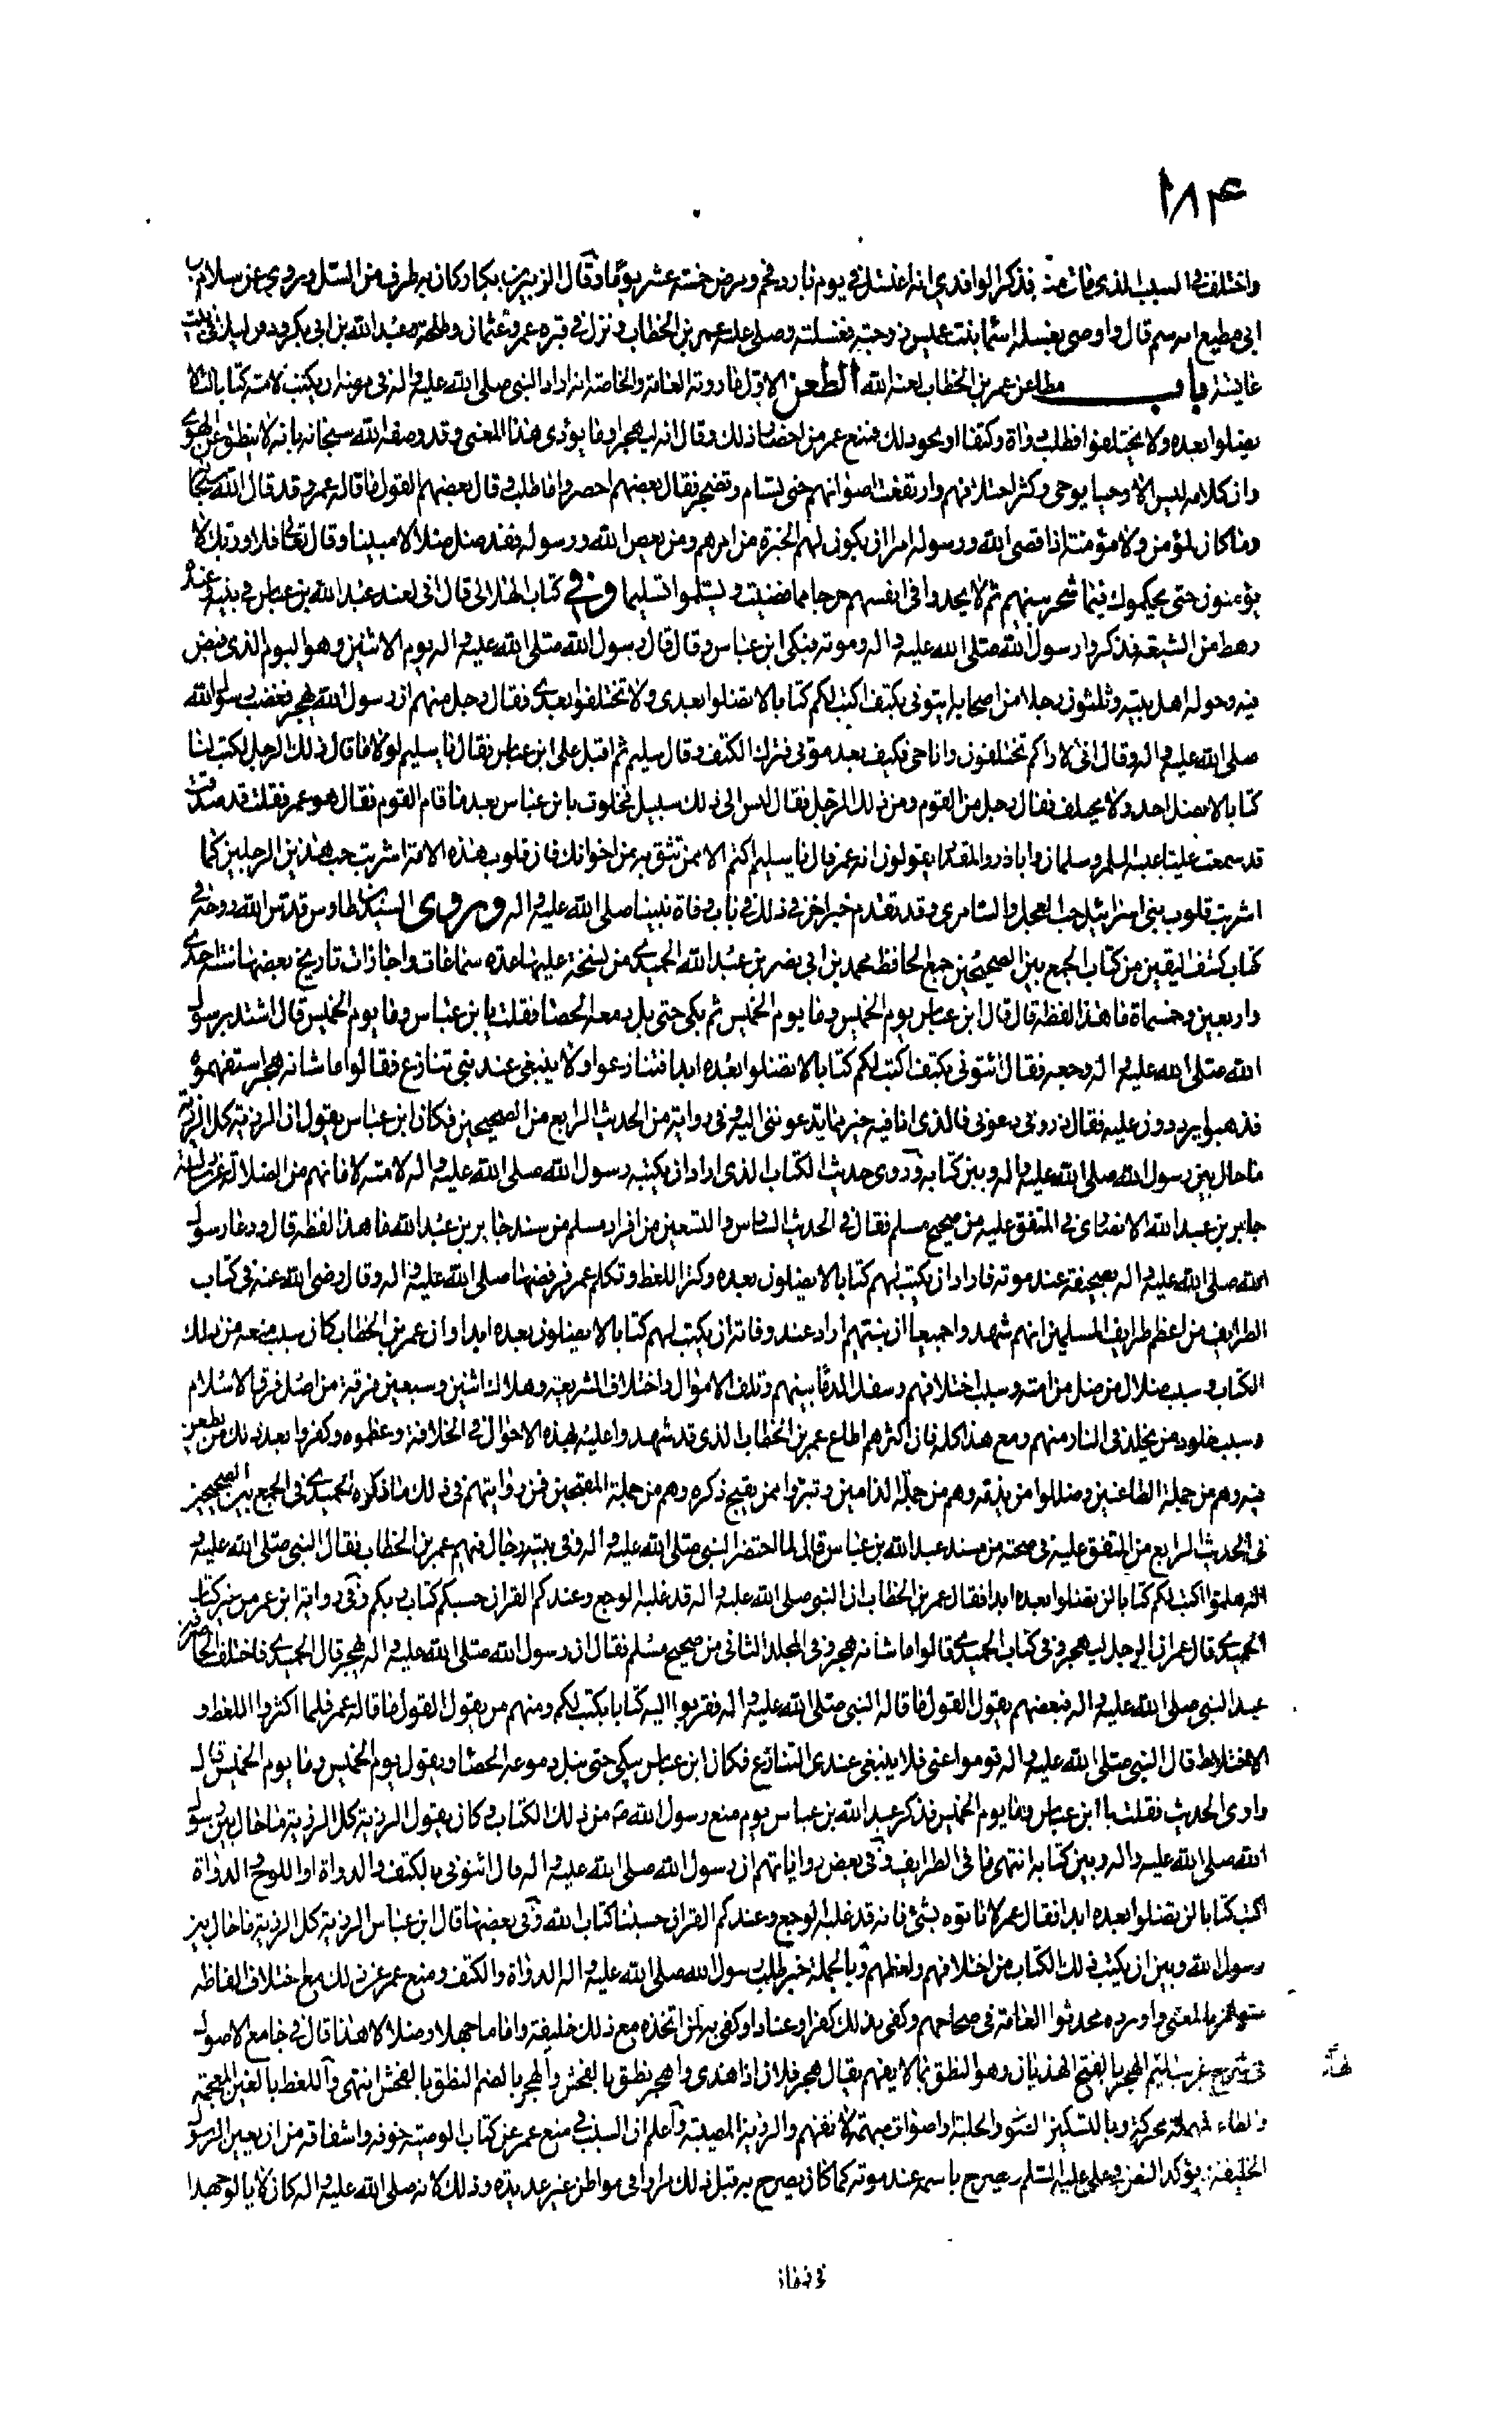 ١٨٤
واختلف في السبب الذي مات منه فذكر الواقدي انه اغتسل في يوم بارد فحم ومرض خمسة عشر يوما وقال الزبير بن بكار كان به طرف من السل وروي عن سلام بن
ابي مطيع انه سم قال واوصى بغسله اسما بنت عميس زوجته فغسلته وصلى عليه عمر بن الخطاب ونزل في قبره عمر وعثمان وطلحة وعبد الله بن ابي بكر ودفن ليلا في بيت
عايشة باب مطاعن عمر بن الخطاب لعنه الله الطعن الاول ما روته العامة والخاصة انه اراد النبي صلى الله عليه واله في مرضه ان يكتب لامته كتابا لئلا
يضلوا بعده ولا يختلفوا فطلب دواة وكتفا او نحو ذلك فمنع عمر من احضار ذلك وقال انه ليهجر او ما يؤدى هذا المعنى وقد وصفه الله سبحانه بانه لا ينطق عن الهوى
وان كلامه ليس الا وحيا يوحى وكثر اختلافهم وارتفعت اصواتهم حتى تسام وتضجر فقال بعضهم احضروا ما طلب وقال بعضهم القول ما قاله عمر وقد قال الله سبحانه
وما كان لمؤمن ولا مؤمنة اذا قضى الله ورسوله امرا ان يكون لهم الخيرة من امرهم ومن يعص الله ورسوله فقد ضل ضلالا مبينا وقال تعالى فلا وربك لا
يؤمنون حتى يحكموك فيما شجر بينهم ثم لا يجدوا في انفسهم حرجا مما قضيت ويسلموا تسليما وفي كتاب الهلالي قال اني لعند عبد الله بن عباس في بيته وعنده
رهط من الشيعة فذكروا رسول الله صلى الله عليه واله وموته فبكى ابن عباس وقال قال رسول الله صلى الله عليه واله يوم الاثنين وهو اليوم الذي قبض
فيه وحوله اهل بيته وثلثون رجلا من اصحابه ايتوني بكتف اكتب لكم كتابا لا تضلوا بعدى ولا تختلفوا بعدى فقال رجل منهم ان رسول الله يهجر فغضب رسول الله
صلى الله عليه واله وقال اني لا راكم تختلفون وانا حي فكيف بعد موتي فترك الكتف قال سليم ثم اقبل على ابن عباس فقال يا سليم لولا ما قال ذلك الرجل لكتب لنا
كتابا لا يضل احد ولا يختلف فقال رجل من القوم ومن ذلك الرجل فقال ليس الى ذلك سبيل فخلوت بابن عباس بعد ما قام القوم فقال هو عمر فقلت قد صدقت
قد سمعت عليا عليه السلم وسلمان وابا ذر والمقداد يقولون انه عمر قال يا سليم اكتم الا ممن تثق به من اخوانك فان قلوب هذه الامة اشربت حب هذين الرجلين كما
اشربت قلوب بني اسرائيل حب العجل والسامرى وقد تقدم خبر اخر في ذلك في باب وفاة نبينا صلى الله عليه واله وروى السيد بن طاوس قدس الله روحه في
كتاب كشف اليقين من كتاب الجمع بين الصحيحين جمع الحافظ محمد بن ابي نصر بن عبد الله الحميدى من نسخة عليها عدة سماعات واجازات تاريخ بعضها سنة احدى
واربعين وخمسماة ما هذا لفظه قال قال ابن عباس يوم الخميس وما يوم الخميس ثم بكى حتى بل دمعه الحصا فقلت يا بن عباس وما يوم الخميس قال اشتد برسول
الله صلى الله عليه واله وجعه فقال ائتوني بكتف اكتب لكم كتابا لا تضلوا بعده ابدا فتنازعوا ولا ينبغي عند نبي تنازع فقالوا ما شانه هجر استفهموه
فذهبوا يرددون عليه فقال ذروني دعوني فالذى انا فيه خير مما تدعونني اليه وفي رواية من الحديث الرابع من الصحيحين فكان ابن عباس يقول ان الرزية كل الرزية
ما حال بين رسول الله صلى الله عليه واله وبين كتابه وروى حديث الكتاب الذى اراد ان يكتبه رسول الله صلى الله عليه واله لامته لامانهم من الضلالة عن رسالته
جابر بن عبد الله الانصارى في المتفق عليه من صحيح مسلم فقال في الحديث السادس والتسعين من افراد مسلم من مسند جابر بن عبد الله ما هذا لفظه قال ودعا رسول
الله صلى الله عليه واله بصحيفة عند موته فاراد ان يكتب لهم كتابا لا يضلون بعده وكثر اللغط وتكلم عمر فرفضها صلى الله عليه واله وقال رضي الله عنه في كتاب
الطرايف من اعظم طرايف المسلمين انهم شهدوا جميعا ان نبيهم اراد عند وفاته ان يكتب لهم كتابا لا يضلون بعده ابدا وان عمر بن الخطاب كان سبب منعه من ذلك
الكتاب وسبب ضلال من ضل من امته وسبب اختلافهم وسفك الدماء بينهم وتلف الاموال واختلاف الشريعة وهلاك اثنين وسبعين فرقة من اصل فرق الاسلام
وسبب خلود من يخلد في النار منهم ومع هذا كله فان اكثرهم اطاع عمر بن الخطاب الذى قد شهدوا عليه بهذه الاحوال في الخلافة وعظموه وكفروا بعد ذلك من يطعن
فيه وهم من جملة الطاعنين وضللوا من يذمه وهم من جملة الذامين وتبرؤا ممن يقبح ذكره وهم من جملة المقبحين فمن روايتهم في ذلك ما ذكره الحميدى في الجمع بين الصحيحين
في الحديث الرابع من المتفق عليه في صحته من مسند عبد الله بن عباس قال لما احتضر النبي صلى الله عليه واله وفي بيته رجال فيهم عمر بن الخطاب فقال النبي صلى الله عليه
واله هلموا اكتب لكم كتابا لن تضلوا بعده ابدا فقال عمر بن الخطاب ان النبي صلى الله عليه واله قد غلبه الوجع وعندكم القران حسبكم كتاب ربكم وفي رواية ابن عمر من غير كتاب
الحميدى قال عمر ان الرجل ليهجر وفي كتاب الحميدى قالوا ما شانه هجر وفي المجلد الثاني من صحيح مسلم فقال ان رسول الله صلى الله عليه واله يهجر قال الحميدى فاختلف الحاضرون
عند النبي صلى الله عليه واله فبعضهم يقول القول ما قاله النبي صلى الله عليه واله فقربوا اليه كتابا يكتب لكم ومنهم من يقول القول ما قاله عمر فلما اكثروا اللغط و
الاختلاط قال النبي صلى الله عليه واله قوموا عني فلا ينبغي عندى التنازع فكان ابن عباس يبكي حتى تبل دموعه الحصا ويقول يوم الخميس وما يوم الخميس قال
راوى الحديث فقلت يا ابن عباس وما يوم الخميس فذكر عبد الله بن عباس يوم منع رسول الله ص من ذلك الكتاب وكان يقول الرزية كل الرزية ما حال بين رسول
الله صلى الله عليه واله وبين كتابه انتهى ما في الطرايف وفي بعض رواياتهم ان رسول الله صلى الله عليه واله قال ائتوني بالكتف والدواة او اللوح والدواة
اكتب كتابا لن تضلوا بعده ابدا فقال عمر لا تاتوه بشئ فانه قد غلبه الوجع وعندكم القران حسبنا كتاب الله وفي بعضها قال ابن عباس الرزية كل الرزية ما حال بين
رسول الله وبين ان يكتب ذلك الكتاب من اختلافهم ولغطهم وبالجملة خبر طلب رسول الله صلى الله عليه واله الدواة والكتف ومنع عمر عن ذلك مع اختلاف الفاظه
متواتر بالمعنى واورده محدثوا العامة في صحاحهم وكفى بذلك كفرا وعنادا وكفى به لمن اتخذه مع ذلك خليفة واماما جهلا وضلالا هذا قال في جامع الاصول
في شرح غريب الميم الهجر بالفتح الهذيان وهو النطق بما لا يفهم يقال هجر فلان اذا هذى واهجر نطق بالفحش والهجر بالضم النطق بالفحش انتهى واللغط بالغين المعجمة
والطاء المهملة محركة وبالتسكين الصوت والجلبة او اصوات مبهمة لا تفهم والرزية المصيبة واعلم ان السبب في منع عمر عن كتاب الوصية خوفه واشفاقه من ان يعين الرسول
الخليفة يؤكد النص على علي عليه السلم يصرح باسمه عند موته كما كان يصرح به قبل ذلك مرارا في مواطن غير عديدة وذلك لانه صلى الله عليه واله كان لا يالو جهدا